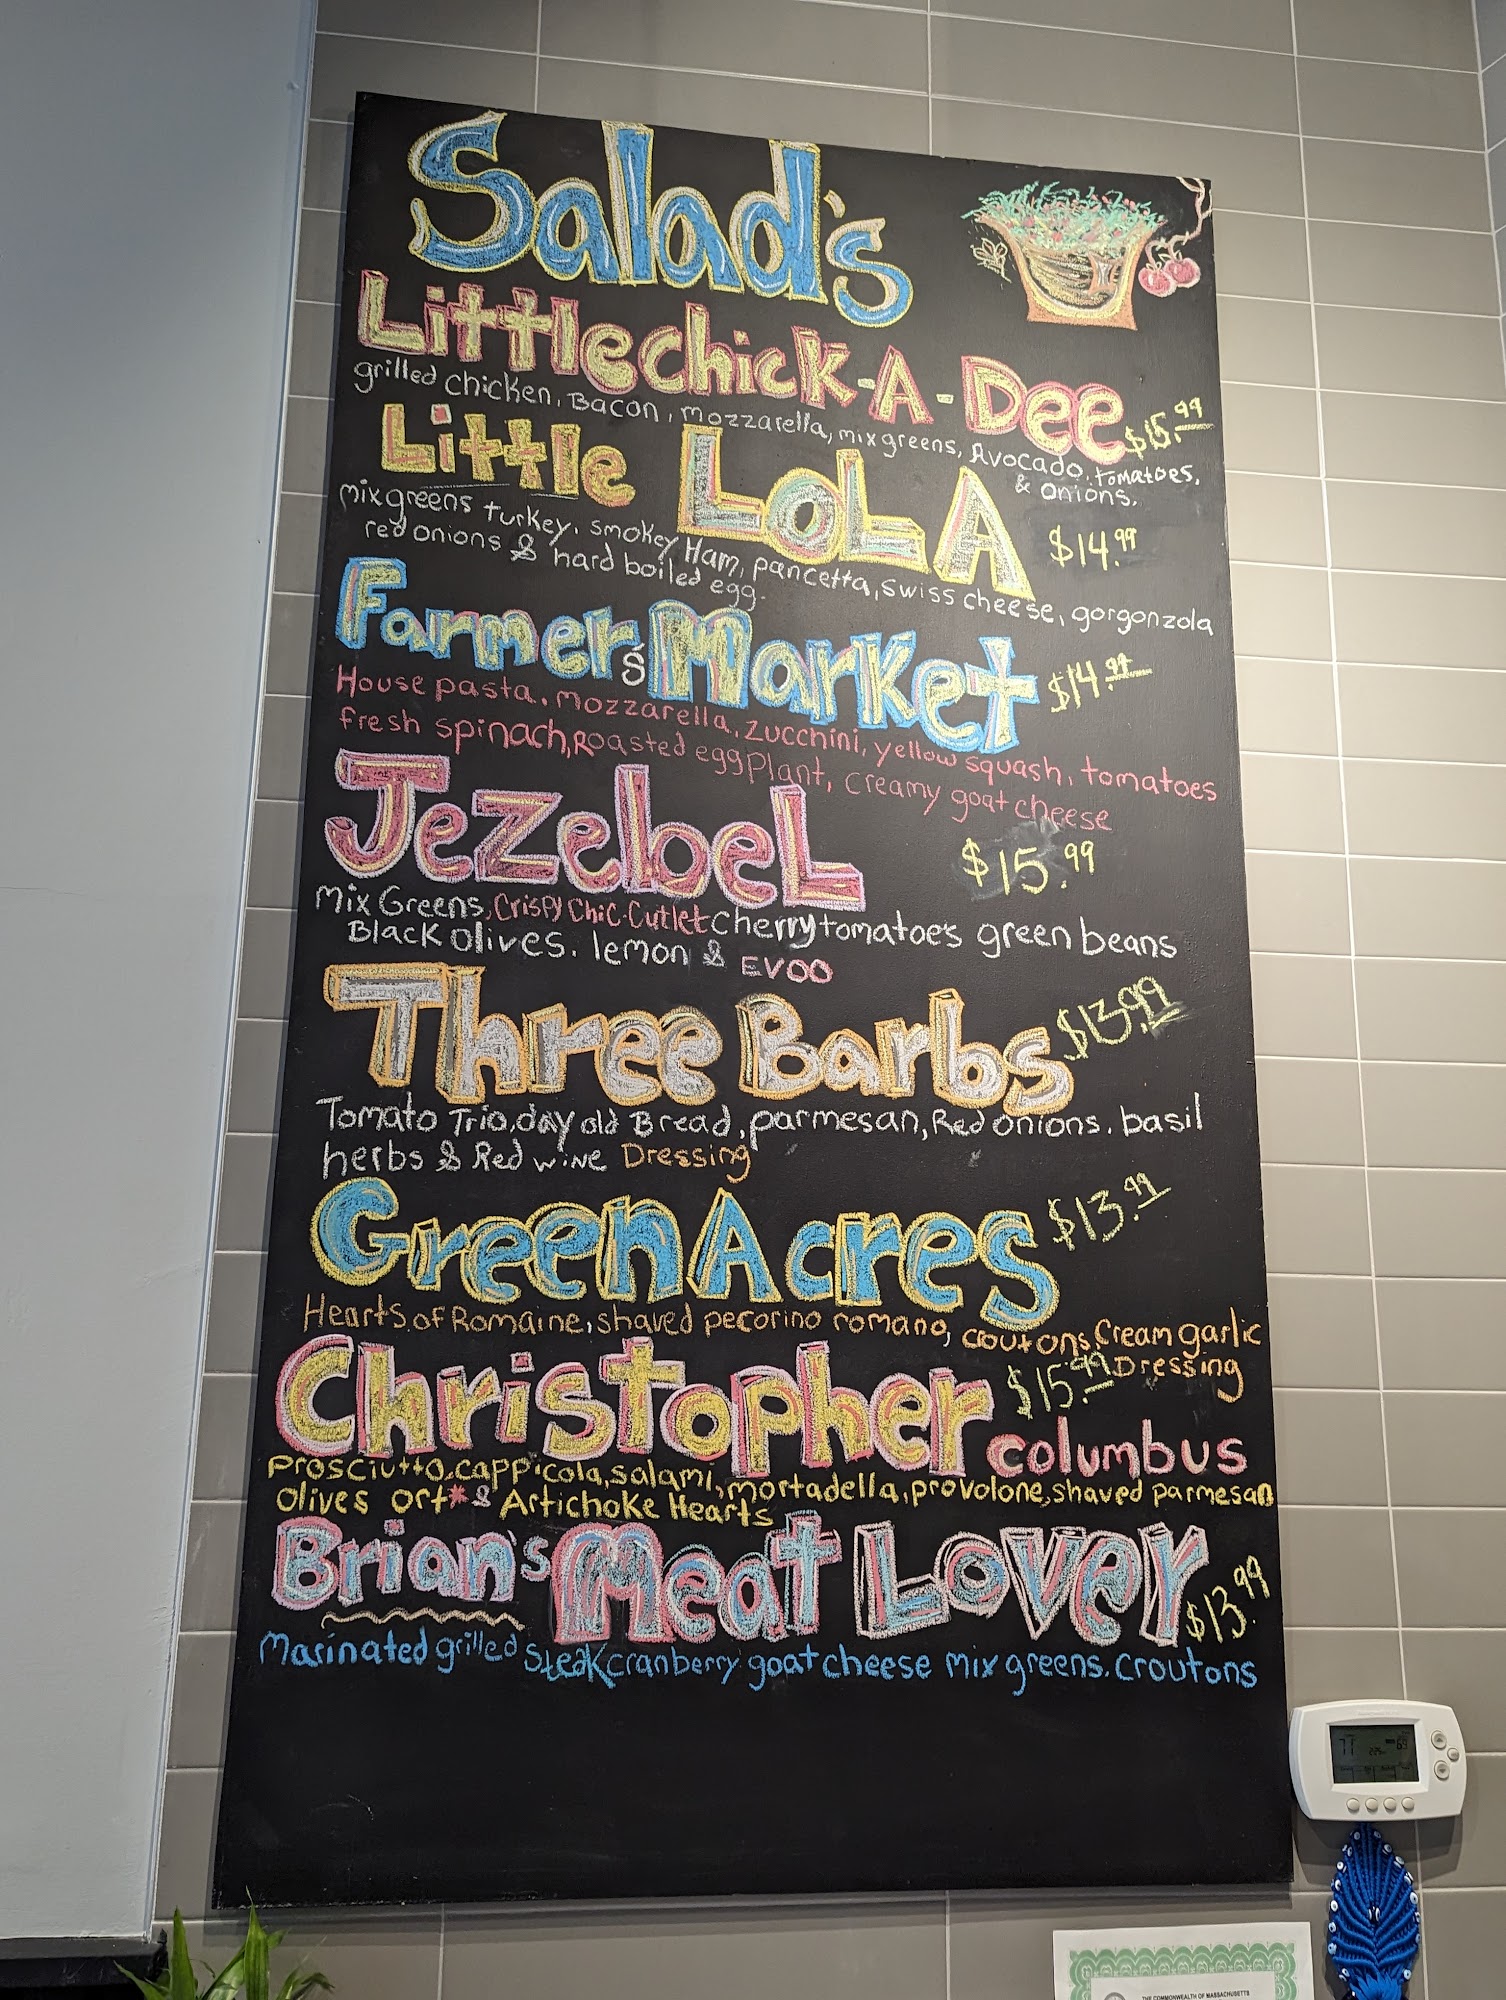 Salad's
Little chick-A-Dee $15.99
grilled chicken, Bacon, mozzarella, mix greens, Avocado, tomatoes,
& onions.
Little LoLA $14.99
mix greens turkey, smokey Ham, pancetta, swiss cheese, gorgonzola
red onions & hard boiled egg.
Farmers Market $14.99
House pasta, mozzarella, zucchini, yellow squash, tomatoes
fresh spinach, Roasted eggplant, creamy goat cheese
JezebeL $15.99
Mix Greens, Crispy Chic-Cutlet cherry tomatoe's green beans
Black olives. lemon & EVOO
Three Barbs $13.99
Tomato Trio, day old Bread, parmesan, Red onions. basil
herbs & Red wine Dressing
Green Acres $13.99
Hearts of Romaine, shaved pecorino romano, coutons, Cream garlic
Dressing
Christopher $15.99
columbus
prosciutto, cappicola, salami, mortadella, provolone, shaved parmesan
olives ort* & Artichoke Hearts
Brian's Meat Lover $13.99
Marinated grilled steak cranberry goat cheese mix greens. croutons
71
69
THE COMMONWEALTH OF MASSACHUSETTS